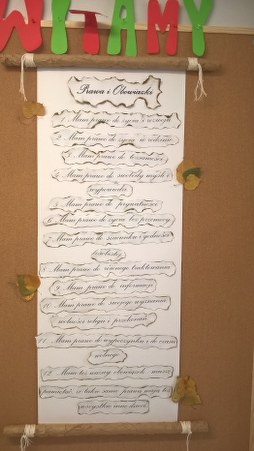 WITAMY
Prawa i Obowiązki
1. Mam prawo do życia i rozwoju
2. Mam prawo do życia w rodzinie
3. Mam prawo do tożsamości
4. Mam prawo do swobody myśli i
wypowiedzi
5. Mam prawo do prywatności
6. Mam prawo do życia bez przemocy
7. Mam prawo do szacunku i godności
osobistej
8. Mam prawo do równego traktowania
9. Mam prawo do informacji
10. Mam prawo do swojego wyznania
religii i przekonań
11. Mam prawo do wypoczynku i do czasu
wolnego
12. Mam też ważny obowiązek muszę
pamiętać, że takie same prawa mają też
wszystkie inne dzieci